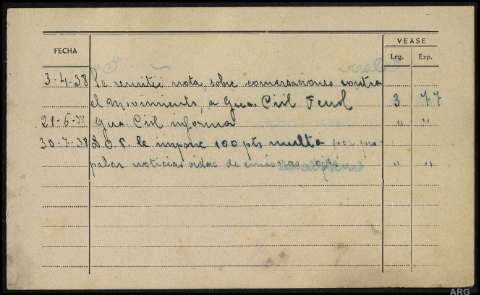 VEASE
FECHA Leg. Exp.
3-4-38 Se remite nota, sobre comersaciones contra
el movimiento, a Gua. Civil Ferrol 3 77
21-6-38 Gua. Civil informa " "
30-7-38 S.O.P. le impone 100 pts multa por pro
palar noticias oidas de emisoras rojas " "
ARG